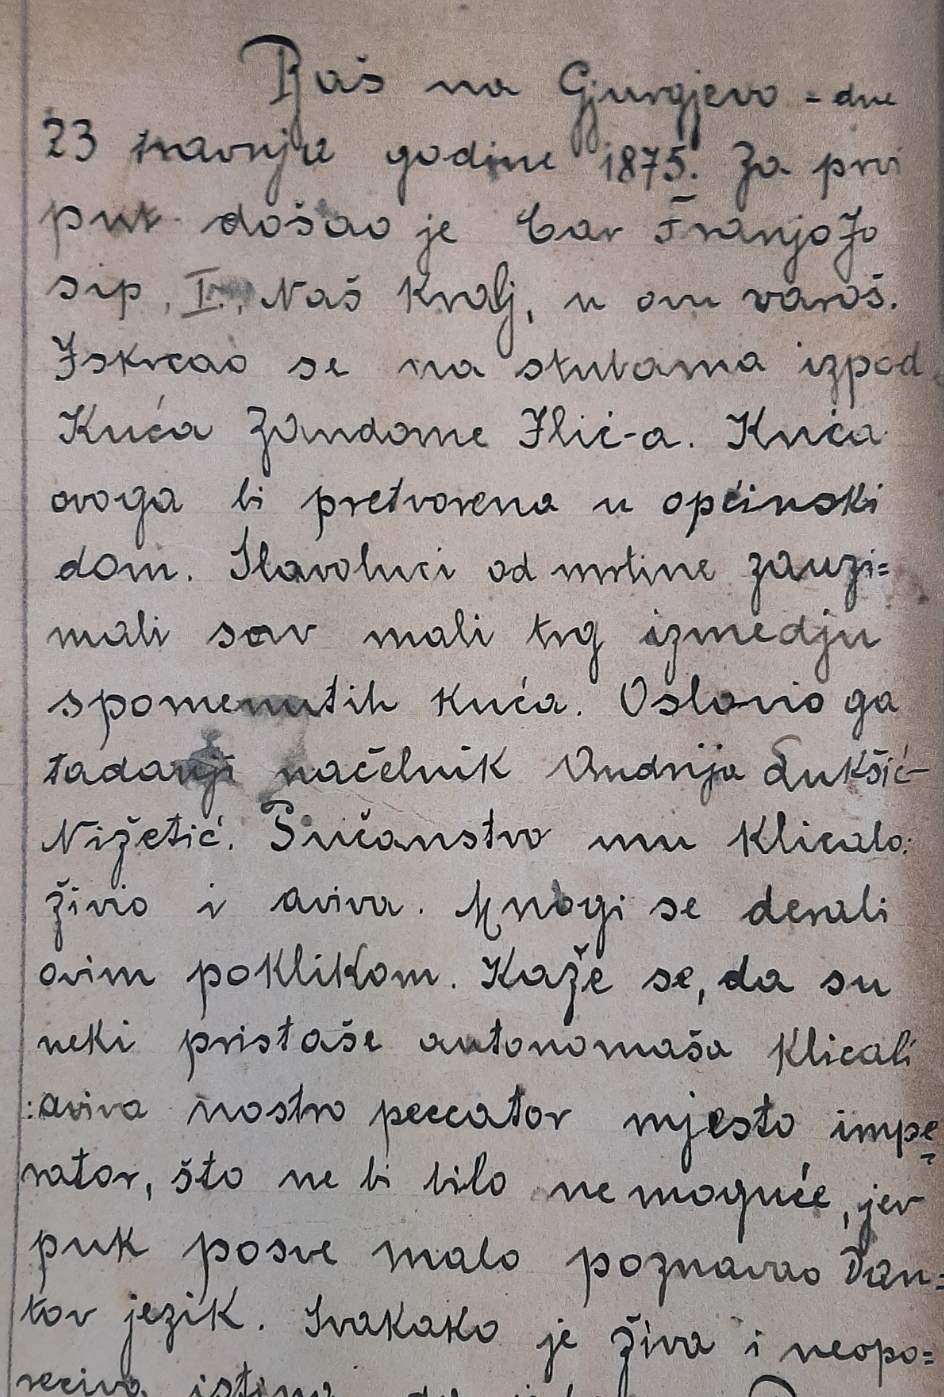 Baš na Gjurgjevo - dne
23 travnja godine 1875. Za prvi
put došao je Car Franjo Jo
sip, I., Naš Kralj, u ovu varoš.
Iskrcao se na stubama izpod
Kuća Zandome Ilić-a. Kuća
ovoga bi pretvorena u općinski
dom. Slavoluci od mrtine zauzi=
mali sav mali trg izmedju
spomenutih kuća. Oslovio ga
tadanji načelnik Andrija Lukšić-
Nižetić. Pučanstvo mu klicalo:
živio i aviva. Mnogi se derali
ovim poklikom. Kaže se, da su
neki pristaše autonomaša klicali
:aviva nostro peccator mjesto impe
rator, što ne bi bilo ne moguće, jer
puk posve malo poznavao Dan=
tov jezik. Svakako je živa i neopo=
reciva istina, da